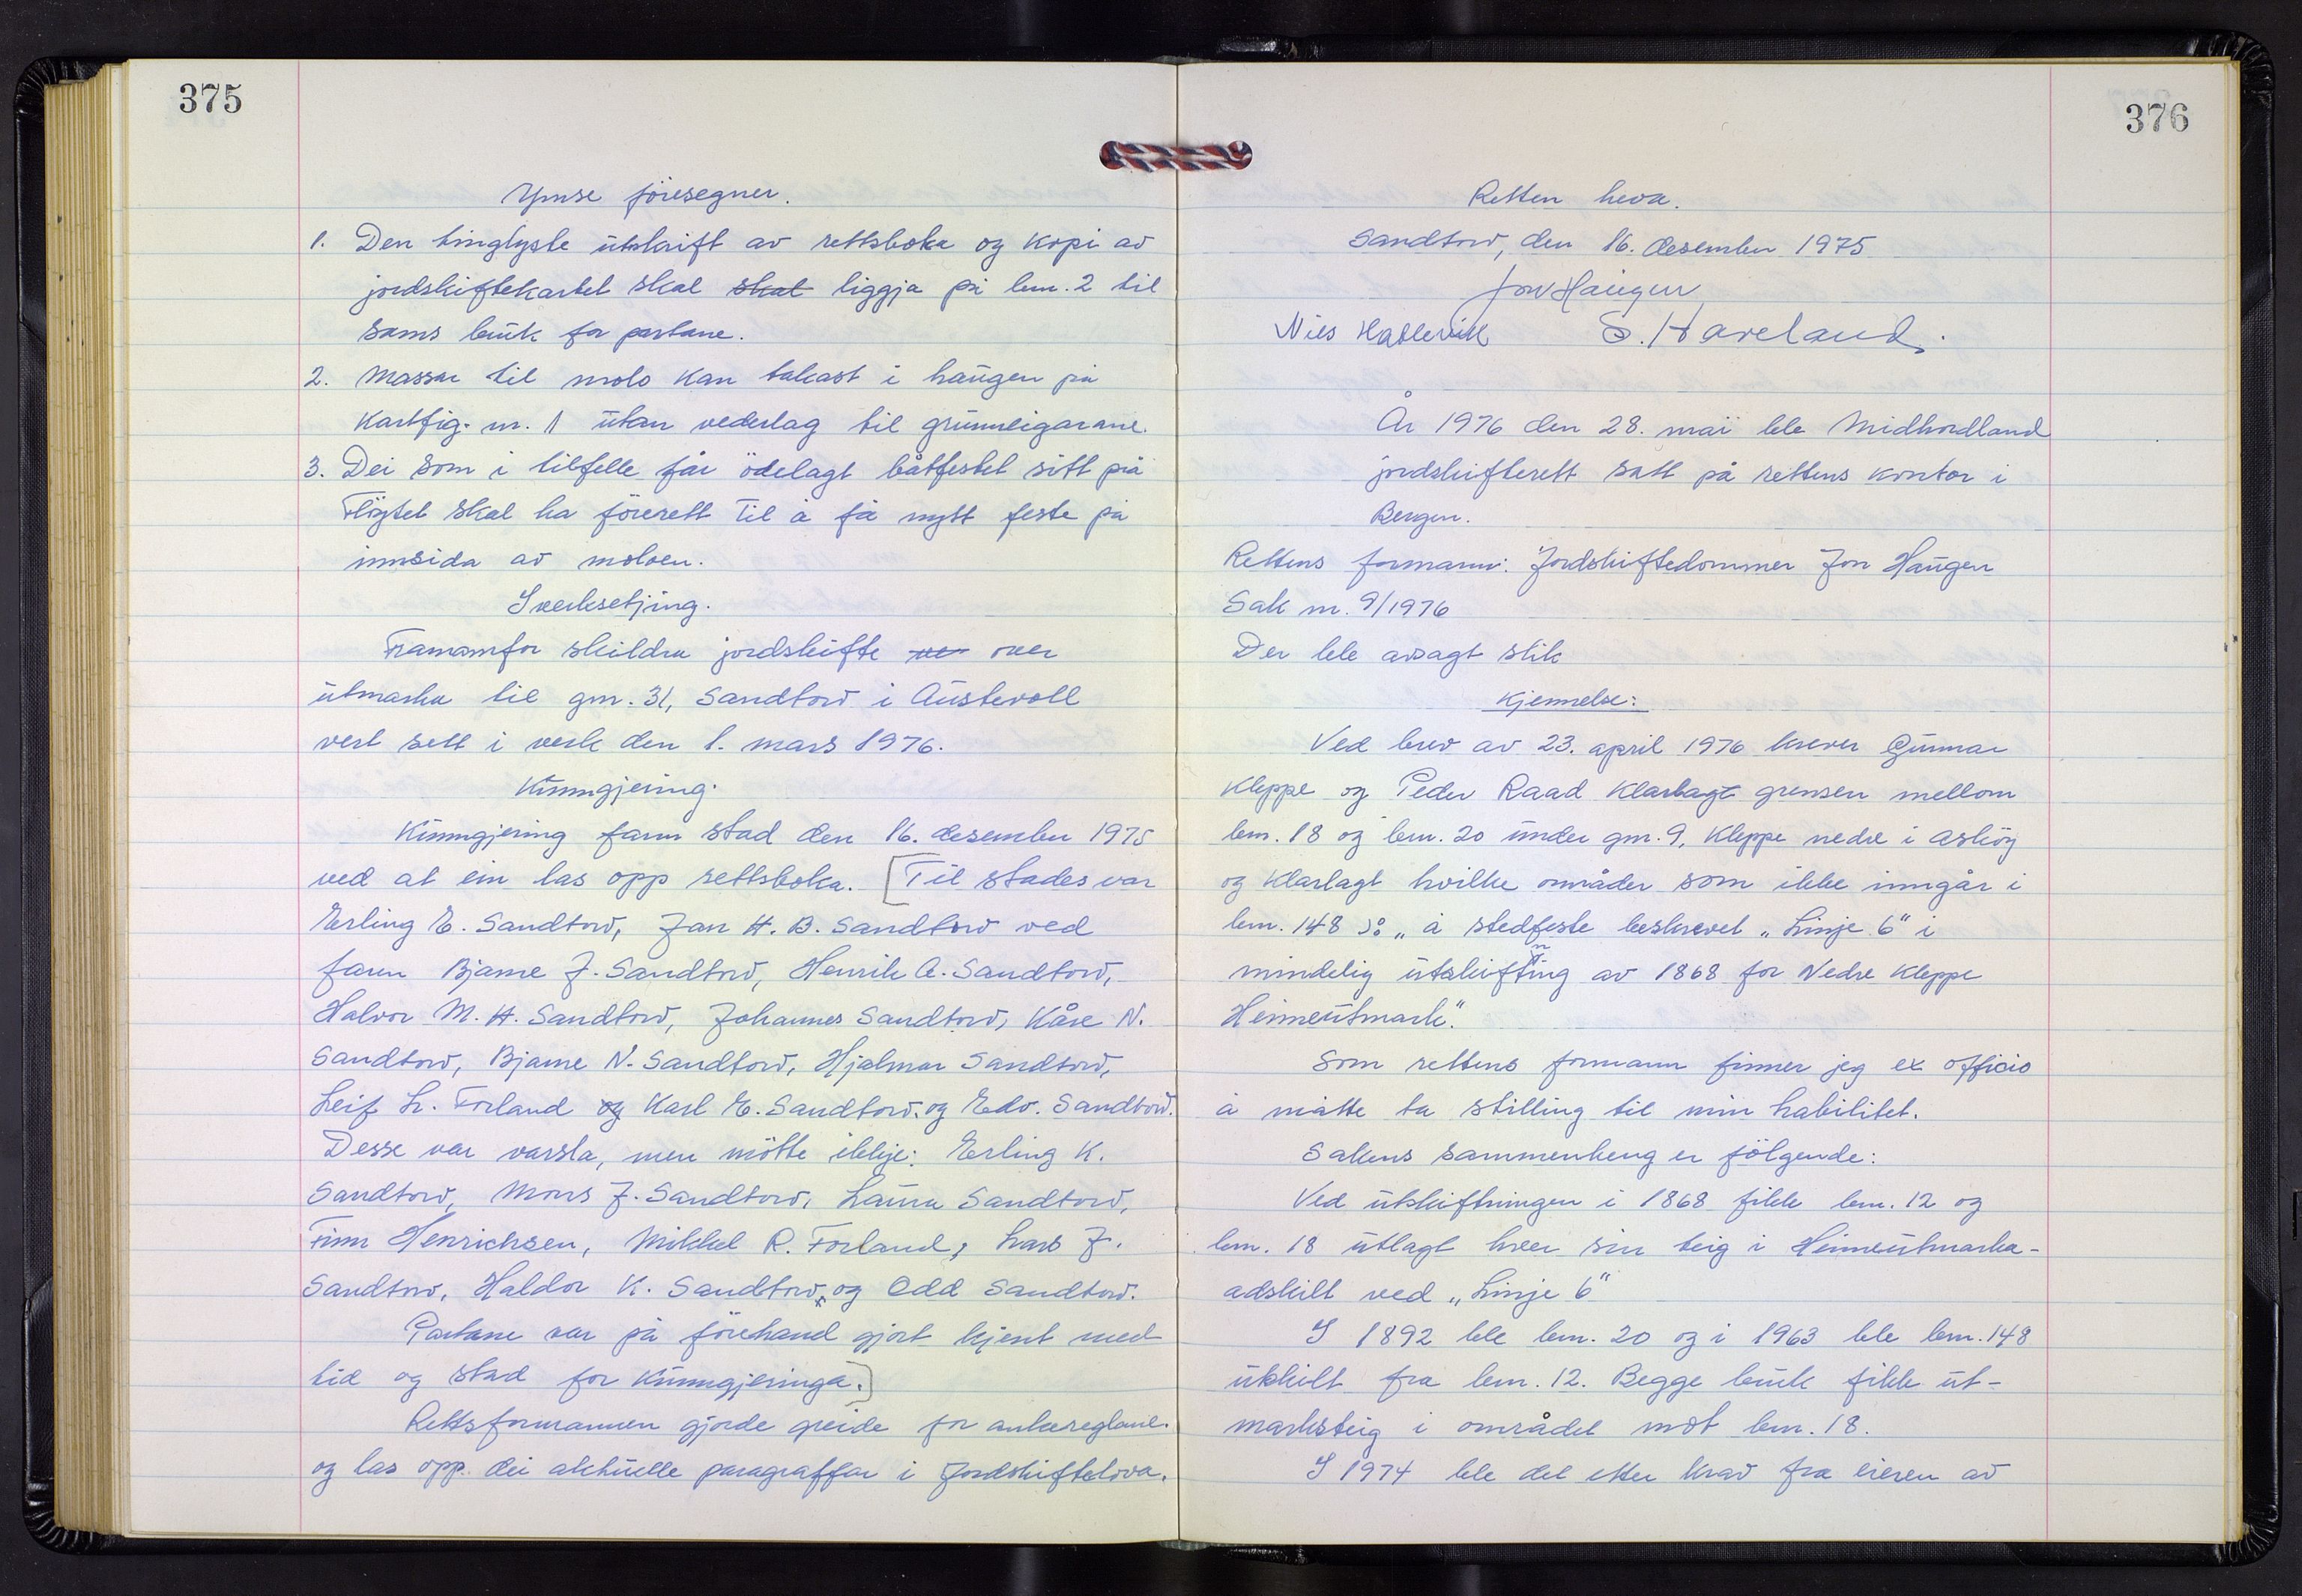 375
Ymse föresegner.
1. Den tinglyste utskrift av rettsboka og kopi av
jordskiftekartet skal skal liggja på bnr. 2 til
sams bruk for partane.
2. Massar til molo kan takast i haugen på
kartfig. nr. 1 utan vederlag til grunneigarane.
3. Dei som i tilfelle får ödelagt båtfestet sitt på
Flögtet skal ha förerett til å få nytt feste på
innsida av moloen.
Iverksetjing.
Framanfor skildra jordskifte ver over
utmarka til gnr. 31, Sandtorv i Austevoll
vert sett i verk den 1. mars 1976.
Kunngjering.
Kunngjering fann stad den 16. desember 1975
ved at ein las opp rettsboka. [Til stades var
Erling E. Sandtorv, Jan H. B. Sandtorv ved
faren Bjarne J. Sandtorv, Henrik A. Sandtorv,
Halvor M. H. Sandtorv, Johannes Sandtorv, Kåre N.
Sandtorv, Bjarne N. Sandtorv, Hjalmar Sandtorv,
Leif L. Forland og Karl E. Sandtorv. og Edv. Sandtorv.
Desse var varsla, men mötte ikkje: Erling K.
Sandtorv, Mons J. Sandtorv, Laura Sandtorv,
Finn Henrichsen, Mikkel R. Forland, Lars J.
Sandtorv, Haldor K. Sandtorv, og Odd Sandtorv.
Partane var på förehand gjort kjent med
tid og stad for kunngjeringa.]
Rettsformannen gjorde greide for ankereglane.
og las opp dei aktuelle paragraffar i Jordskiftelova.
376
Retten heva.
Sandtorv, den 16. desember 1975
Jon Haugen
Nils S. Haveland.
År 1976 den 28. mai ble Midhordland
jordskifterett satt på rettens kontor i
Bergen.
Rettens formann: Jordskiftedommer Jon Haugen
Sak nr. 9/1976
Der ble avsagt slik
Kjennelse:
Ved brev av 23. april 1976 krever Gunnar
Kleppe og Peder Raad klarlagt grensen mellom
bnr. 18 og bnr. 20 under gnr. 9, Kleppe nedre i Asköy
og klarlagt hvilke områder som ikke inngår i
bnr. 148 ɔ: „ å stedfeste beskrevet „Linje 6" i
mindelig utskiftning av 1868 for Nedre Kleppe
Heimeutmark".
Som rettens formann finner jeg ex officio
å måtte ta stilling til min habilitet.
Sakens sammenheng er fölgende:
Ved utskiftningen i 1868 fikk bnr. 12 og
bnr. 18 utlagt hver sin teig i Heimeutmarka-
adskilt ved „Linje 6"
I 1892 ble bnr. 20 og i 1963 ble bnr. 148
utskilt fra bnr. 12. Begge bruk fikk ut-
marksteig i området mot bnr. 18.
I 1974 ble det etter krav fra eieren av